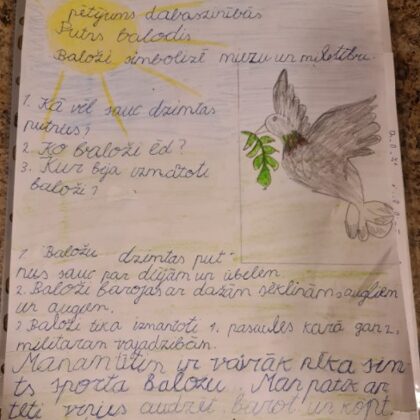 pētījums dabaszinībās
Putns balodis
Baloži simbolizē mieru un mīlestību.
1. Kā vēl sauc dzimtas
putnus?
2. Ko baloži ēd?
3. Kur bija izmantoti
baloži?
1. Baložu dzimtas put-
nus sauc par dūjām un ūbelēm.
2. Baloži barojas ar dažām sēkliņām, augļiem
un augiem.
3 Baloži tika izmantoti 1. pasaules karā gan 2.
militārām vajadzībām.
Manam tētim ir vairāk nekā sim-
ts sporta baložu. Man patīk ar
tēti viņus audzēt barot un kopt.